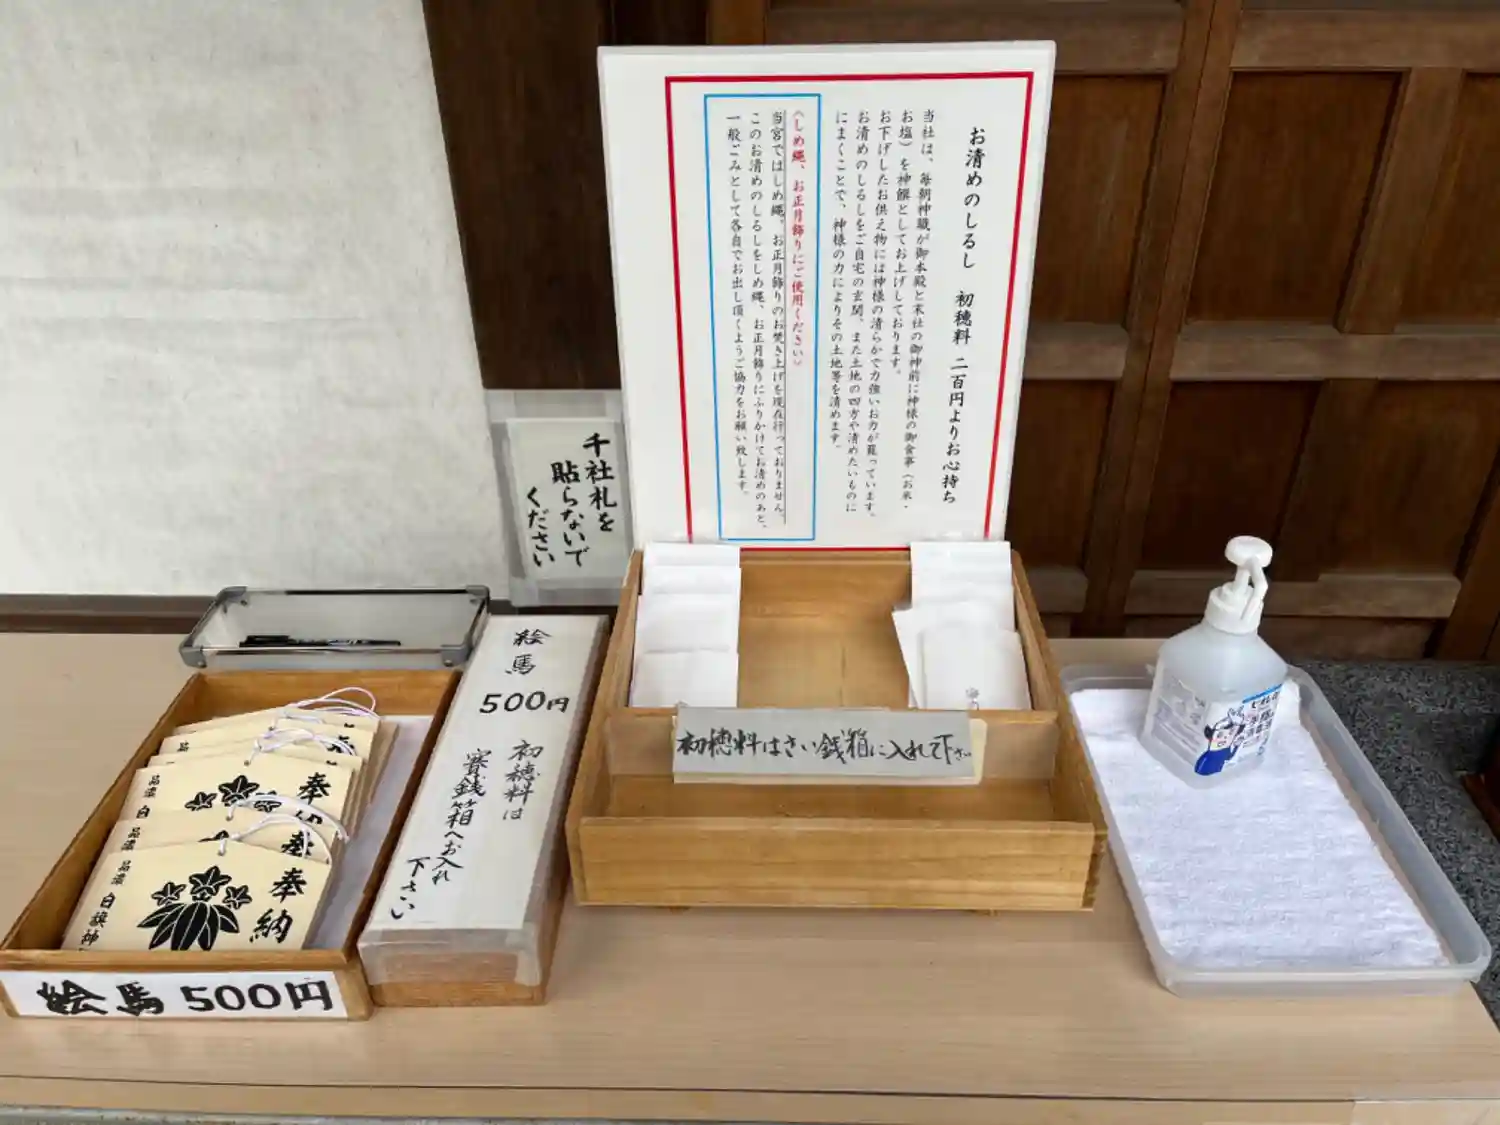 お清めのしるし　初穂料　二百円よりお心持ち
当社は、毎朝神職が御本殿と末社の御神前に神様の御食事（お米・
お塩）を神饌としてお上げしております。
お下げしたお供え物には神様の清らかで力強いお力が龍っています。
お清めのしるしをご自宅の玄関、また土地の四方や清めたいものに
にまくことで、神様の力によりその土地等を清めます。
（しめ縄、お正月飾りにご使用ください）
当宮ではしめ縄、お正月飾りのお焚き上げを現在行っておりません。
このお清めのしるしをしめ縄、お正月飾りにふりかけてお清めのあと、
一般ごみとして各自でお出し頂くようご協力をお願い致します。
千社札を
貼らないで
ください
絵馬
500円
初穂料は
賽銭箱へお入れ
下さい
初穂料はさい銭箱に入れて下さい
奉納
品濃 白
奉納
品濃 白
奉納
品濃 白旗神
絵馬 500円